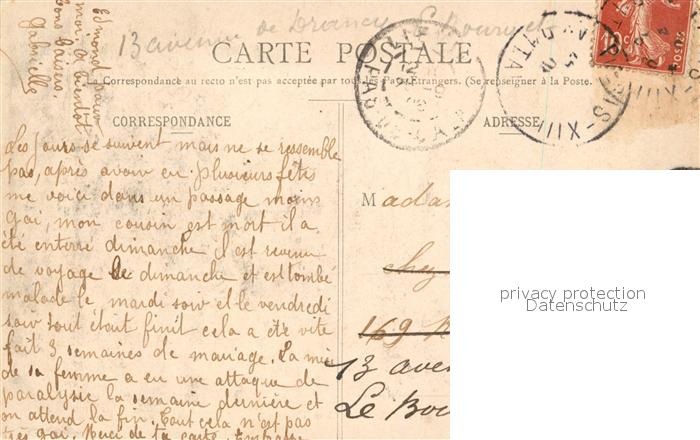 13 avenue de Drancy Le Bourget
CARTE POSTALE
Correspondance au recto n'est pas acceptée par tous les Pays Étrangers. (Se renseigner à la Poste.
CORRESPONDANCE
ADRESSE
Les jours se suivent mais ne se ressemble
pas, après avoir eu plusieurs fêtes
me voici dans un passage moins
gai, mon cousin est mort il a
été enterré dimanche il est revenu
de voyage le dimanche et est tombé
malade le mardi soir et le vendredi
soir tout était finit cela a été vite
fait 3 semaines de mariage. La mère
de sa femme a eu une attaque de
paralysie la semaine dernière et
on attend la fin. Tout cela n'est pas
très gai. Merci de ta carte. Embrasse
Edmond pour
moi. A bientôt
Bons baisers.
Gabrielle
Mada
chy
169 R
13 aven
Le Bou
privacy protection
Datenschutz